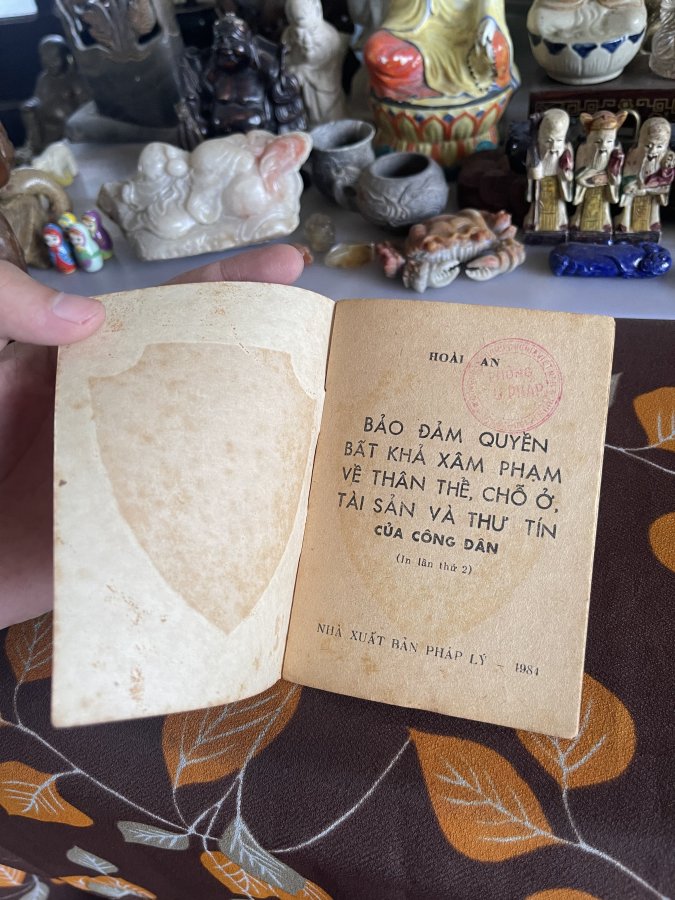 HOÀI AN
PHÒNG
TƯ PHÁP
BẢO ĐẢM QUYỀN
BẤT KHẢ XÂM PHẠM
VỀ THÂN THỂ, CHỖ Ở,
TÀI SẢN VÀ THƯ TÍN
CỦA CÔNG DÂN
(In lần thứ 2)
NHÀ XUẤT BẢN PHÁP LÝ – 1984